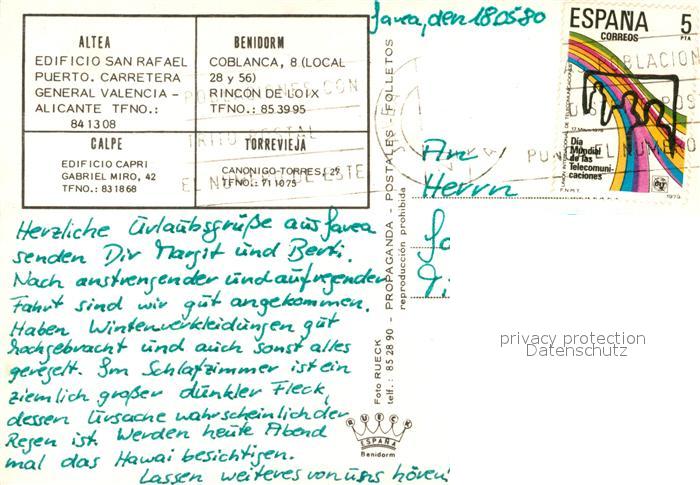 Javea, den 18.05.80
ALTEA
EDIFICIO SAN RAFAEL
PUERTO. CARRETERA
GENERAL VALENCIA -
ALICANTE TFNO.:
84 13 08
BENIDORM
COBLANCA, 8 (LOCAL
28 y 56)
RINCON DE LOIX
TFNO.: 85 39 95
CALPE
EDIFICIO CAPRI
GABRIEL MIRO, 42
TFNO.: 83 18 68
TORREVIEJA
CANONIGO-TORRES, 27
TFNO.: 71 10 75
ESPAÑA 5
CORREOS PTA
17 Mayo 1979
Dia
Mundial
de las
Telecomuni-
caciones
F.N.M.T.
1979
POBLACION
PON
CON
DISTRITO POSTAL
PON EL NUMERO
EL N
DE ESTE
An
Herrn
Herzliche Urlaubsgrüße aus Javea
senden Dir Margit und Berti.
Nach anstrengender und aufregender
Fahrt sind wir gut angekommen.
Haben Winterverkleidungen gut
hochgebracht und auch sonst alles
geregelt. Im Schlafzimmer ist ein
ziemlich großer dunkler Fleck,
dessen Ursache wahrscheinlich der
Regen ist. Werden heute Abend
mal das Hawai besichtigen.
Lassen weiteres von uns hören!
Foto RUECK
telf.: 85 28 90 - PROPAGANDA - POSTALES - FOLLETOS
reproducción prohibida
RUECK
ESPAÑA
Benidorm
privacy protection
Datenschutz